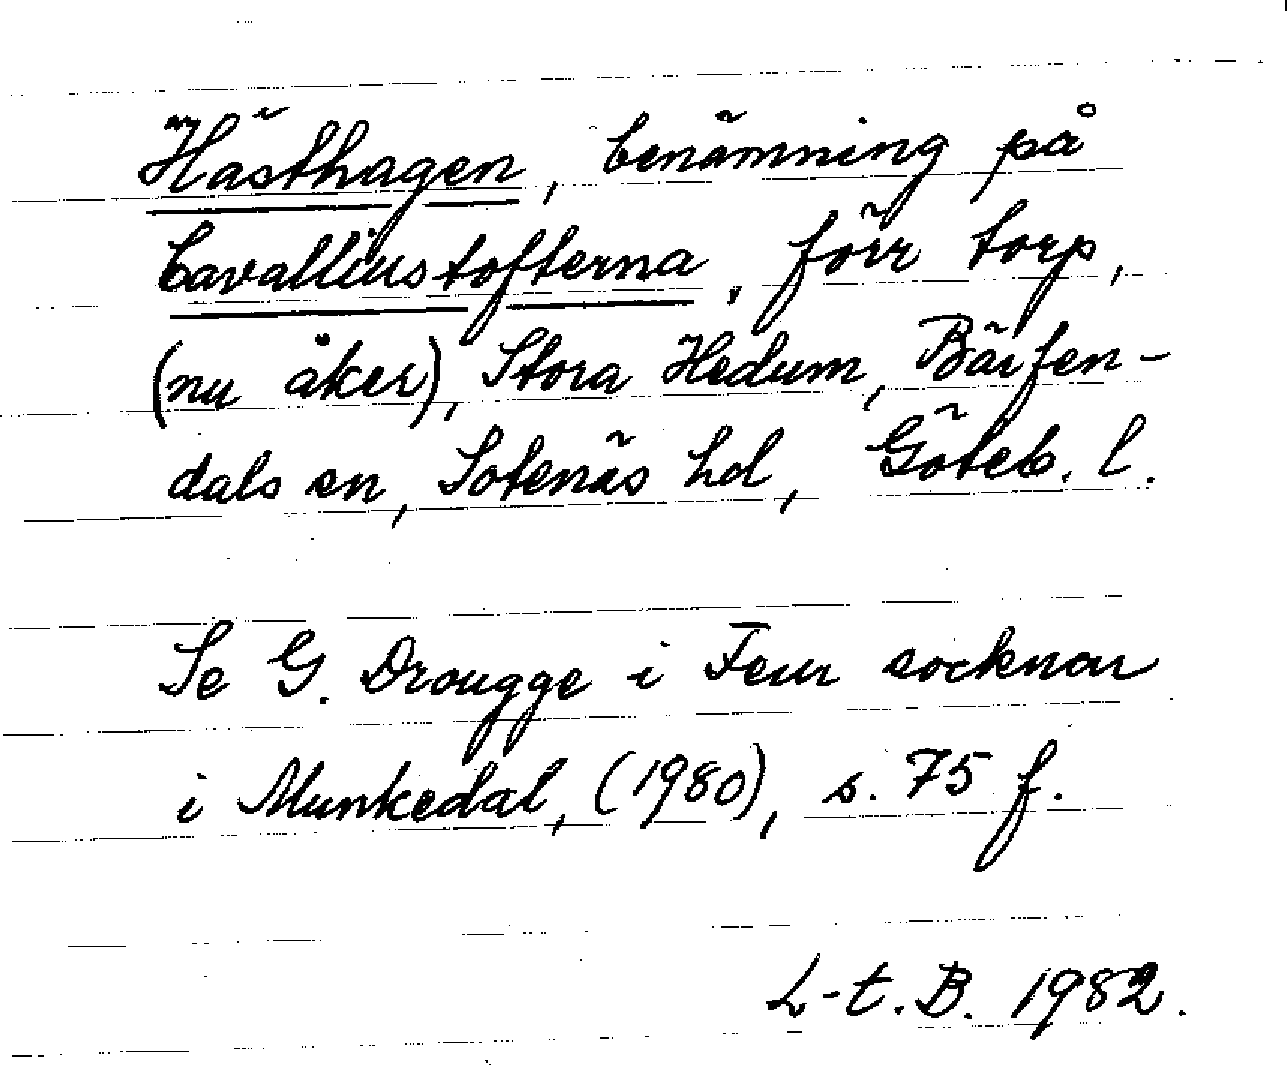 Hästhagen, benämning på
Cavalliustofterna, förr torp,
(nu åker), Stora Hedum, Bärfen-
dals sn, Sotenäs hd, Göteb. l.
Se G. Drougge i Fem socknar
i Munkedal, (1980), s. 75 f.
L-t. B. 1982.